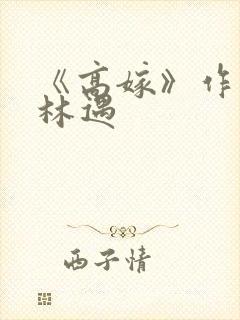 《高嫁》作
林遇
西子情